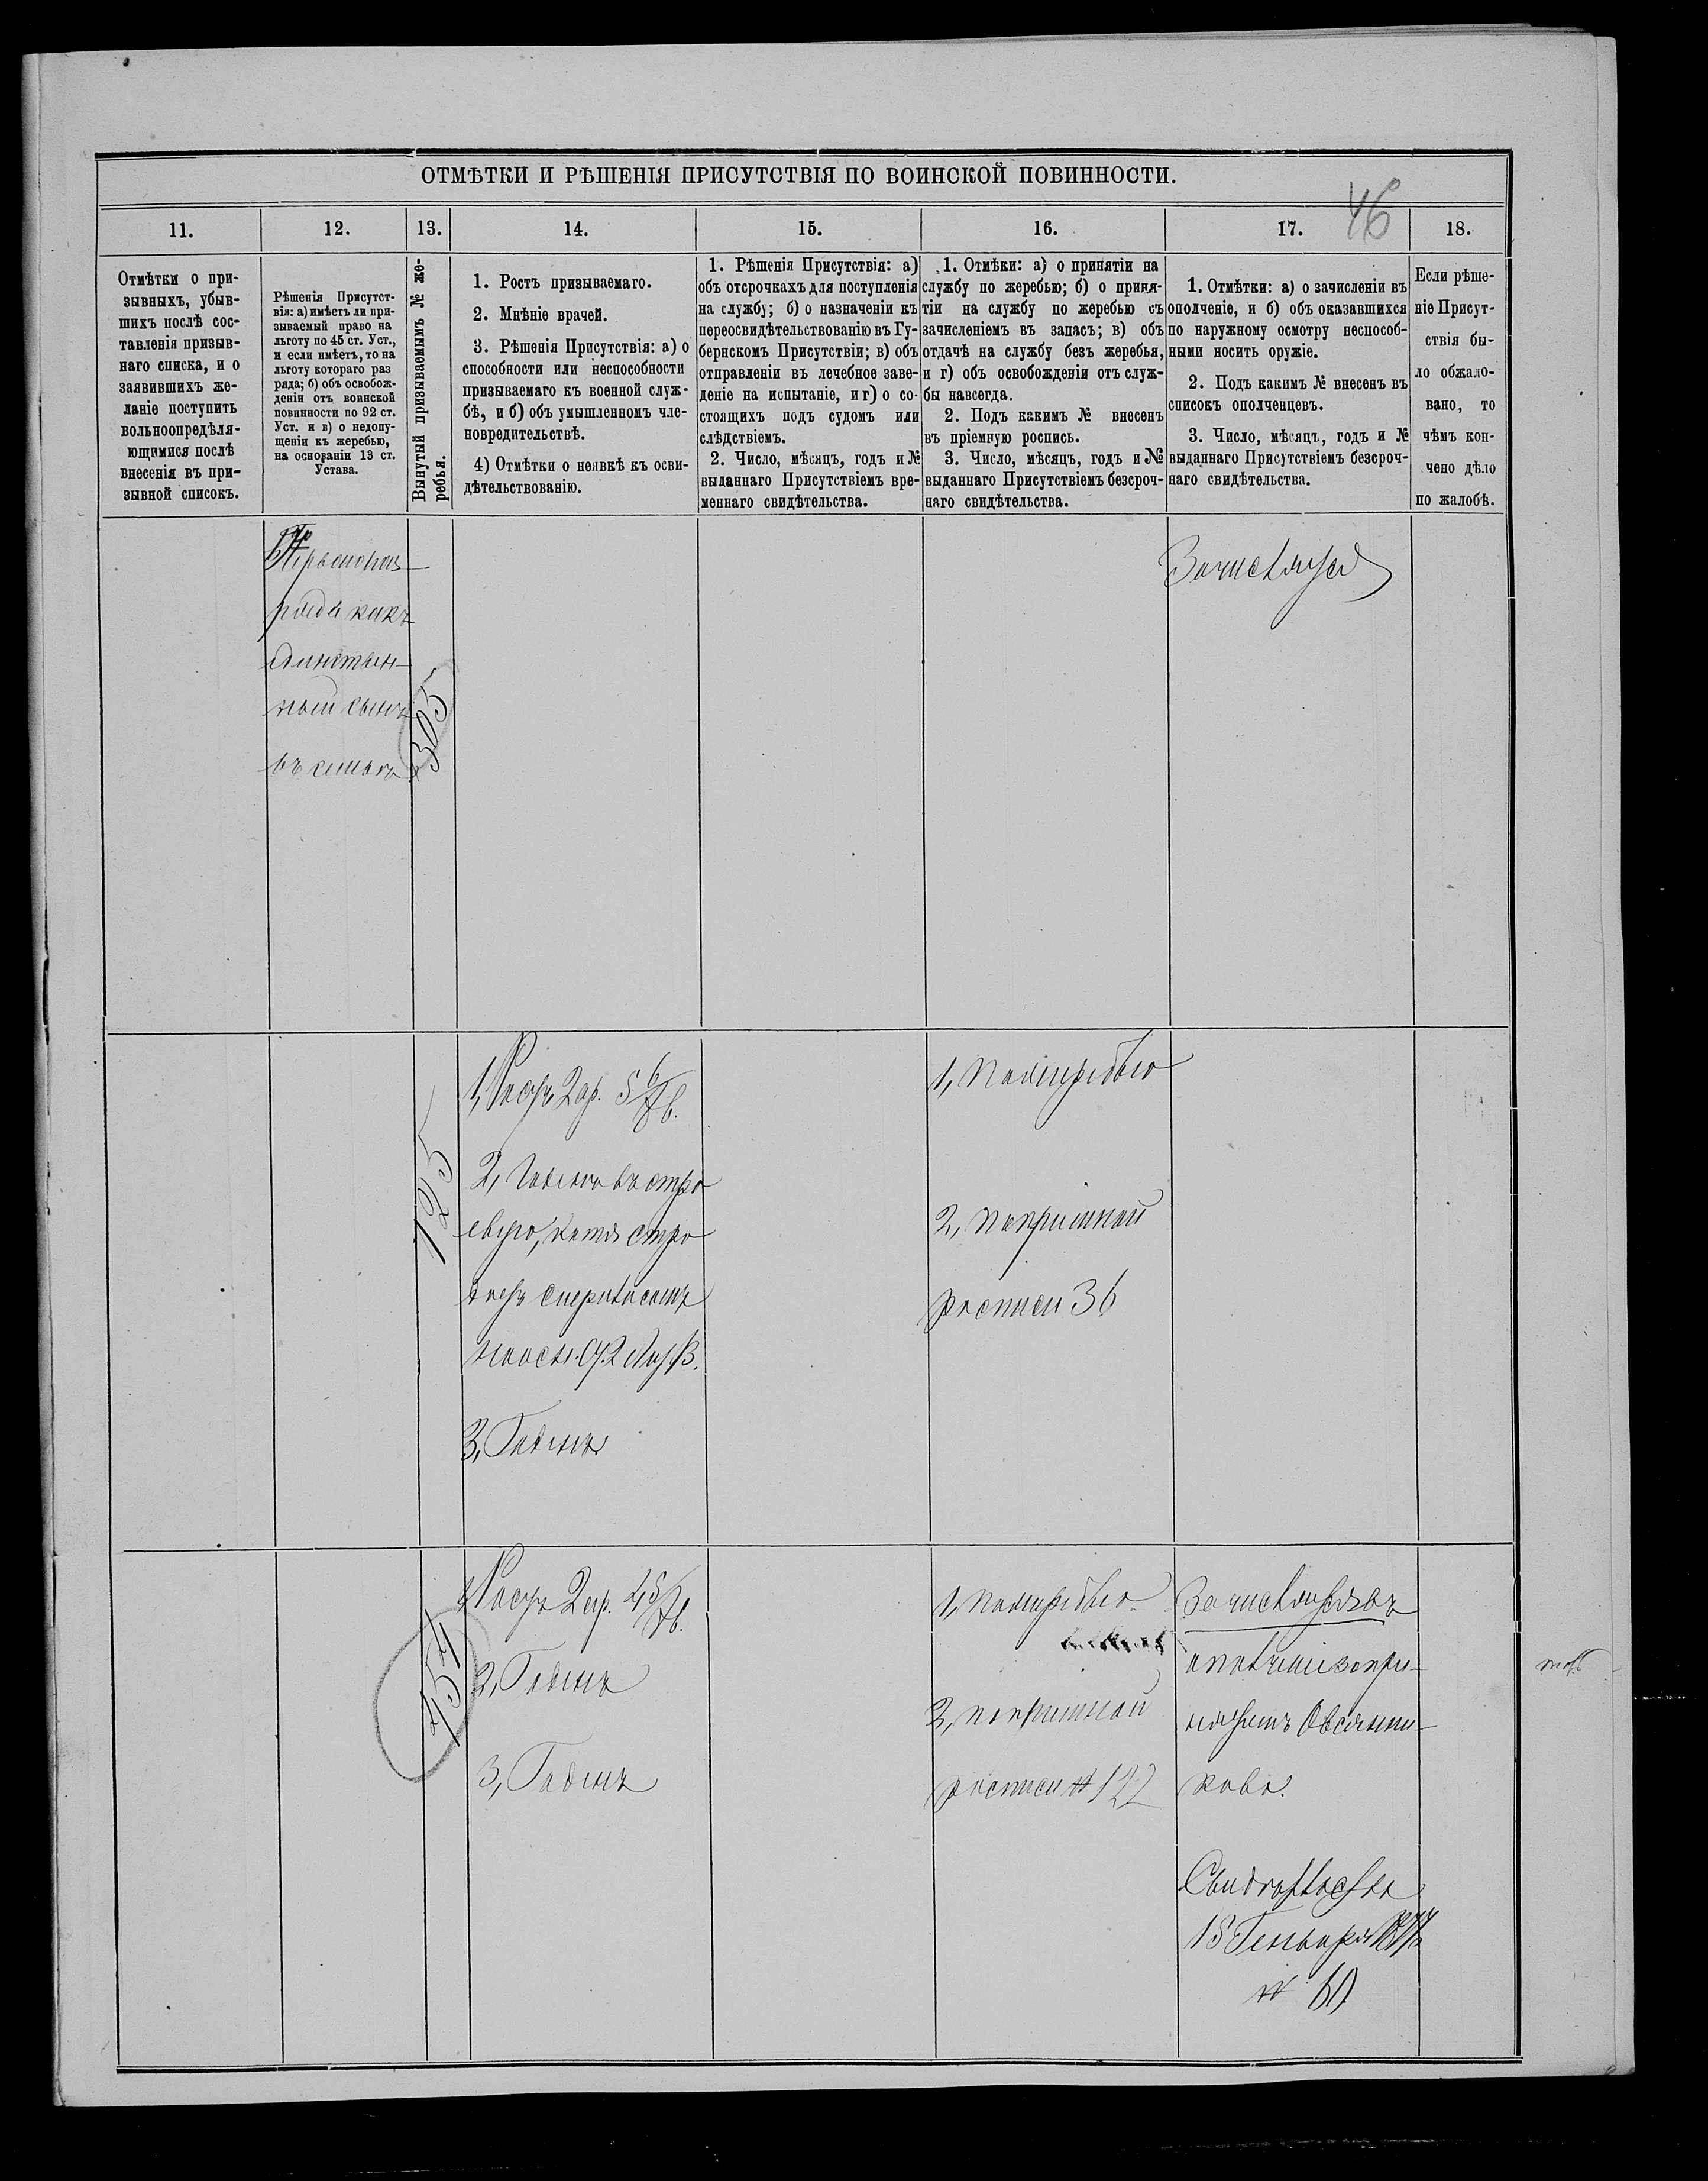 ОТМѢТКИ И РѢШЕНІЯ ПРИСУТСТВІЯ ПО ВОИНСКОЙ ПОВИННОСТИ.
46
11.
12.
13.
14.
15.
16.
17.
18.
Отмѣтки о при-
зывныхъ, убыв-
шихъ послѣ сос-
тавленія призыв-
наго списка, и о
заявившихъ же-
ланіе поступить
вольноопредѣля-
ющимися послѣ
внесенія въ при-
зывной списокъ.
Рѣшенія Присутст-
вія: а) имѣетъ ли при-
зываемый право на
льготу по 45 ст. Уст.,
и если имѣетъ, то на
льготу котораго раз
ряда; б) объ освобож-
деніи отъ воинской
повинности по 92 ст.
Уст. и в) о недопу-
щеніи къ жеребью,
на основаніи 13 ст.
Устава.
Вынутый призываемымъ № же-
ребья.
1. Ростъ призываемаго.
2. Мнѣніе врачей.
3. Рѣшенія Присутствія: а) о
способности или неспособности
призываемаго къ военной служ-
бѣ, и б) объ умышленномъ чле-
новредительствѣ.
4) Отмѣтки о неявкѣ къ осви-
дѣтельствованію.
1. Рѣшенія Присутствія: а)
объ отсрочкахъ для поступленія
на службу; б) о назначеніи къ
переосвидѣтельствованію въ Гу-
бернскомъ Присутствіи; в) объ
отправленіи въ лечебное заве-
деніе на испытаніе, и г) о со-
стоящихъ подъ судомъ или
слѣдствіемъ.
2. Число, мѣсяцъ, годъ и №
выданнаго Присутствіемъ вре-
меннаго свидѣтельства.
1. Отмѣки: а) о принятіи на
службу по жеребью; б) о приня-
тіи на службу по жеребью съ
зачисленіемъ въ запасъ; в) объ
отдачѣ на службу безъ жеребья,
и г) объ освобожденіи отъ служ-
бы навсегда.
2. Подъ какимъ № внесенъ
въ пріемную роспись.
3. Число, мѣсяцъ, годъ и №
выданнаго Присутствіемъ безсроч-
наго свидѣтельства.
1. Отмѣтки: а) о зачисленіи въ
ополченіе, и б) объ оказавшихся
по наружному осмотру неспособ-
ными носить оружіе.
2. Подъ какимъ № внесенъ въ
списокъ ополченцевъ.
3. Число, мѣсяцъ, годъ и №
выданнаго Присутствіемъ безсроч-
наго свидѣтельства.
Если рѣше-
ніе Присут-
ствія бы-
ло обжало-
вано, то
чѣмъ кон-
чено дѣло
по жалобѣ.
Перваго раз-
ряда какъ
единствен-
ный сынъ
въ семьѣ
305
Зачисляется
125
1, Ростъ 2 ар. 5 6/8 в.
2,
3, Годенъ
1, По жеребью
2, по пріемной
росписи 36
454
1, Ростъ 2 ар. 4 5/8 в.
2, Годенъ
3, Годенъ
1, По жеребью
2, по пріемной
росписи № 122
Зачисляется въ
ополченіе за при-
нятіемъ Овсянни-
кова.
Свидѣтельство
15 Генваря
№ 60